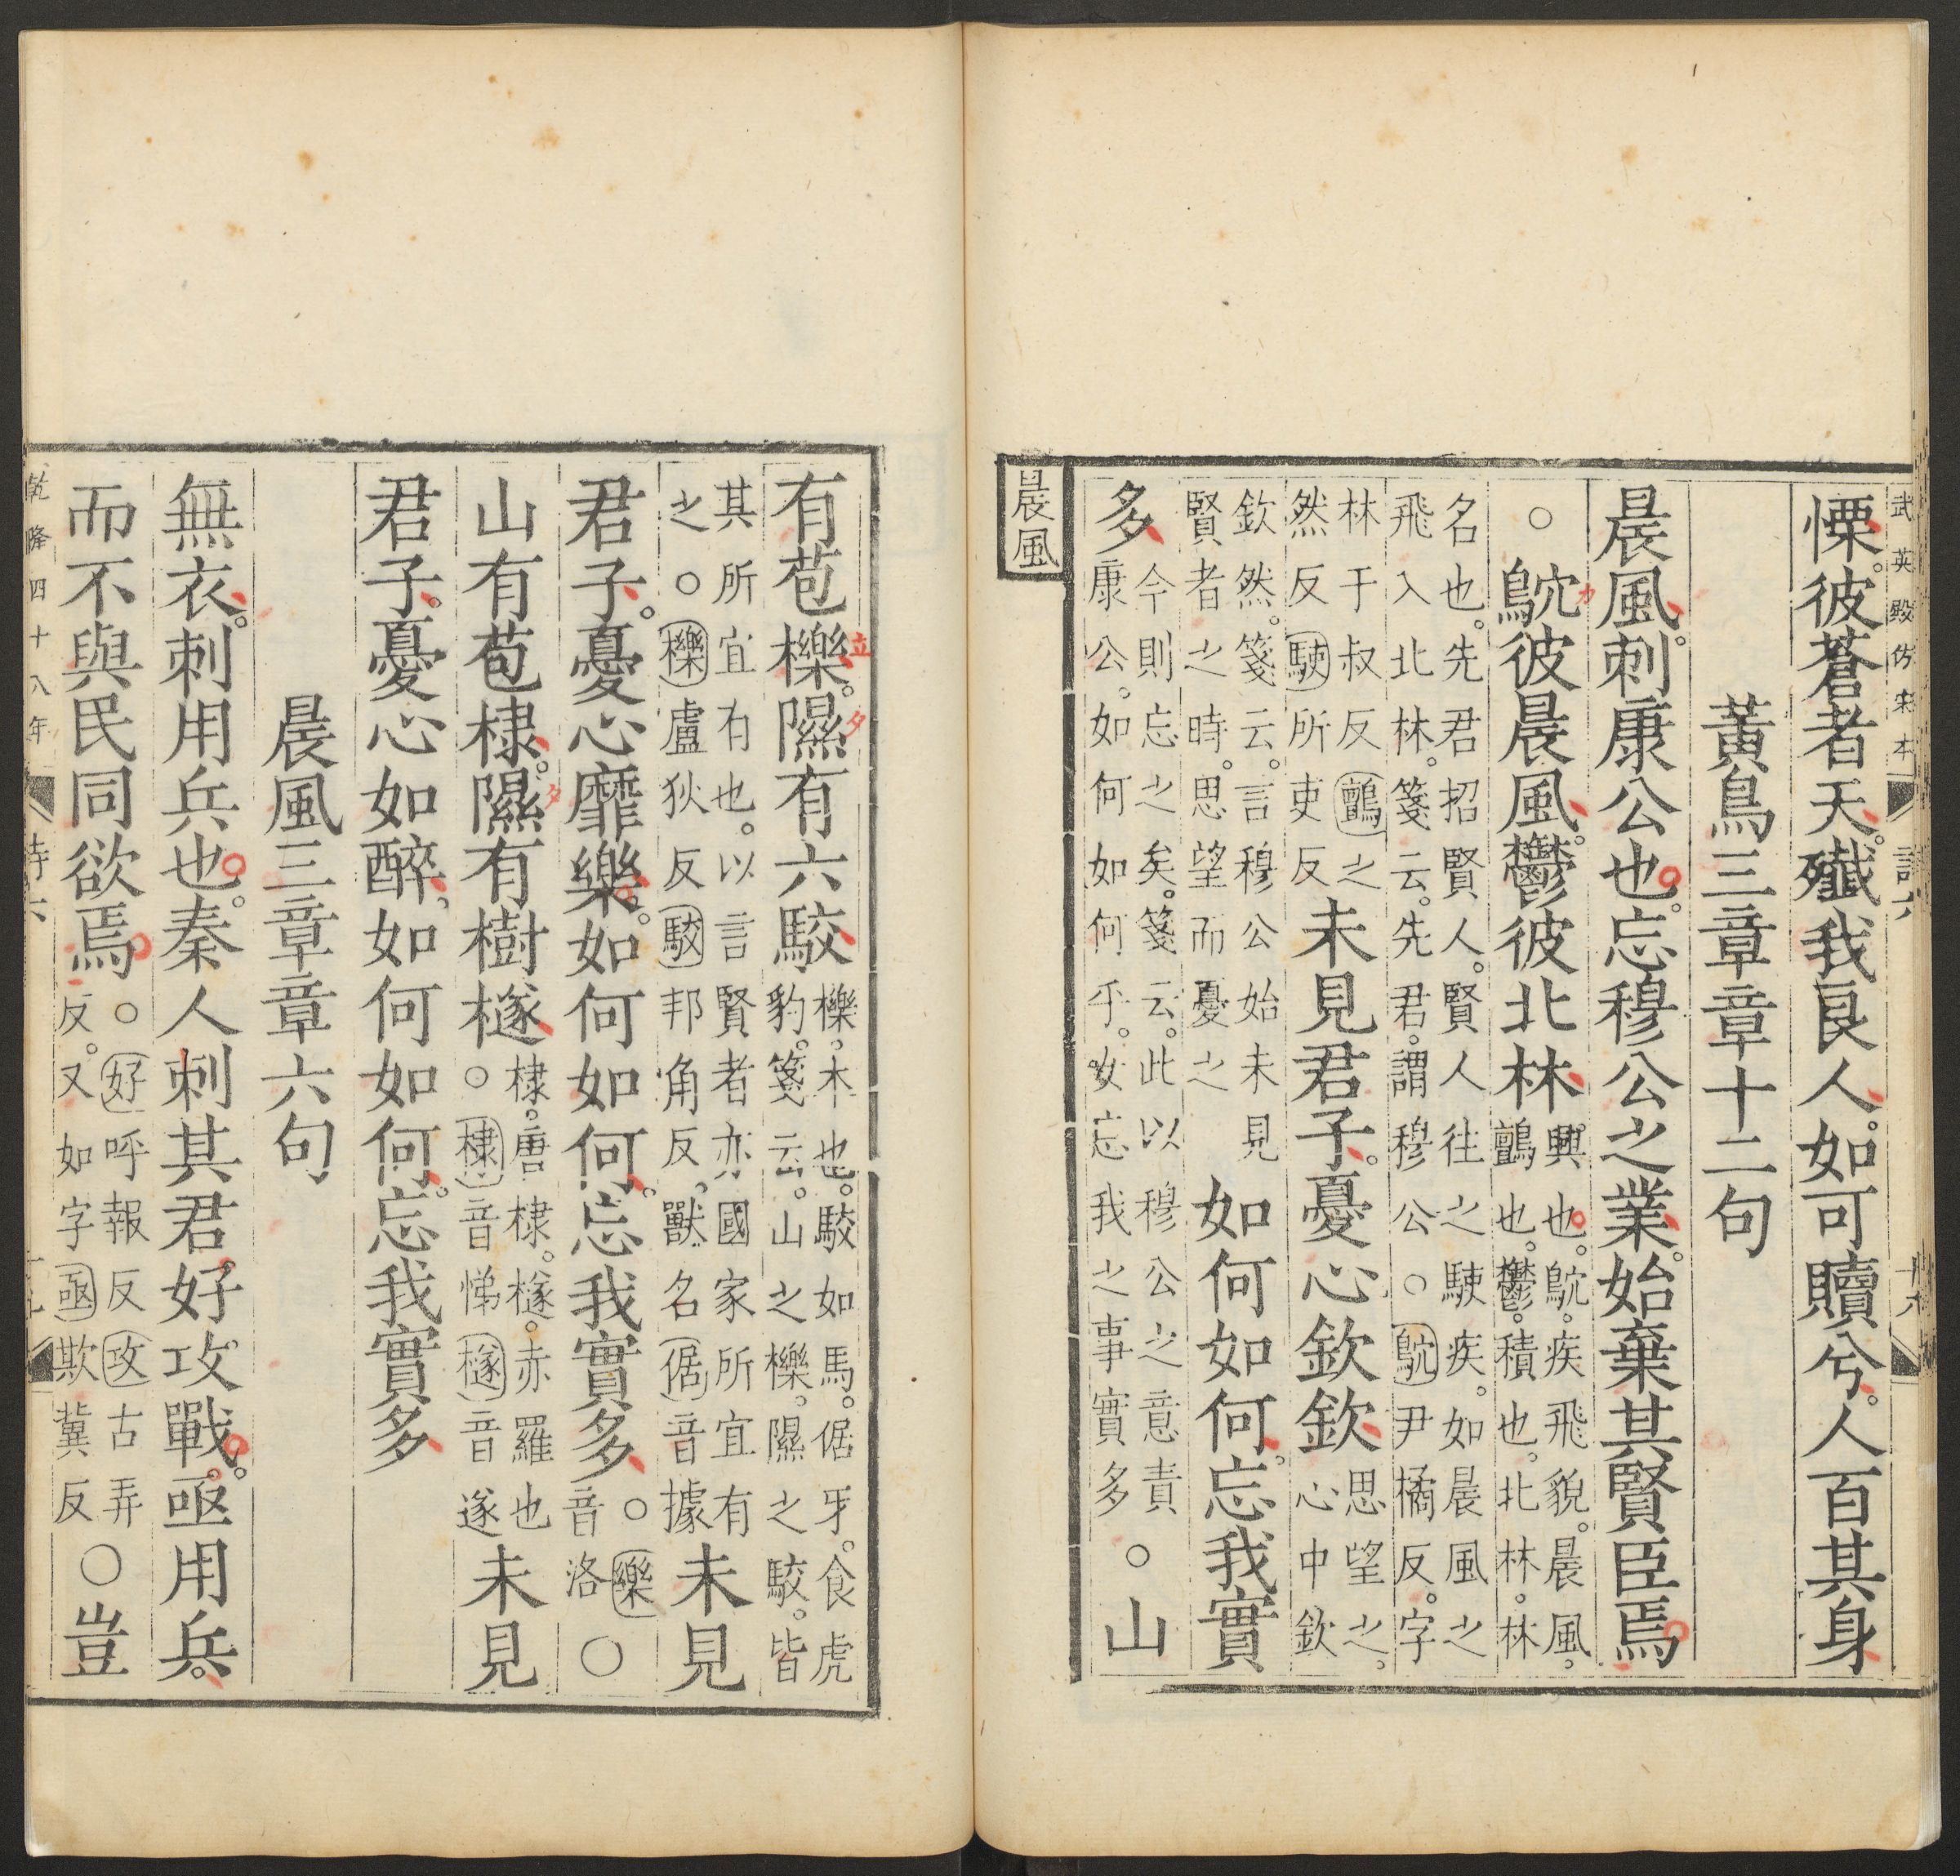 武英殿仿宋本
慄。彼蒼者天。殲我良人。如可贖兮。人百其身
黃鳥三章章十二句
晨風。刺康公也。忘穆公之業。始棄其賢臣焉
○鴥彼晨風。鬱彼北林
興也。鴥。疾飛貌。晨風。
鸇也。鬱。積也。北林。林
名也。先君招賢人。賢人往之駛疾。如晨風之
飛入北林。箋云。先君。謂穆公。○鴥尹橘反。字
林于叔反鸇之
然反駛所吏反
未見君子。憂心欽欽
思望之。
心中欽
欽然。箋云。言穆公始未見
賢者之時。思望而憂之
如何如何。忘我實
多
今則忘之矣。箋云。此以穆公之意責
康公。如何如何乎。女忘我之事實多
○山
晨風
有苞櫟。隰有六駮
櫟。木也。駮如馬。倨牙。食虎
豹。箋云。山之櫟。隰之駮。皆
其所宜有也。以言賢者亦國家所宜有
之。○櫟盧狄反駮邦角反。獸名倨音據
未見
君子。憂心靡樂。如何如何。忘我實多。
○樂
音洛
○
山有苞棣。隰有樹檖
棣。唐棣。檖。赤羅也
○棣音悌檖音遂
未見
君子。憂心如醉。如何如何。忘我實多
晨風三章章六句
無衣。刺用兵也。秦人刺其君好攻戰。亟用兵。
而不與民同欲焉
○好呼報反攻古弄
反。又如字亟欺冀反
○豈
乾隆四十八年
詩六